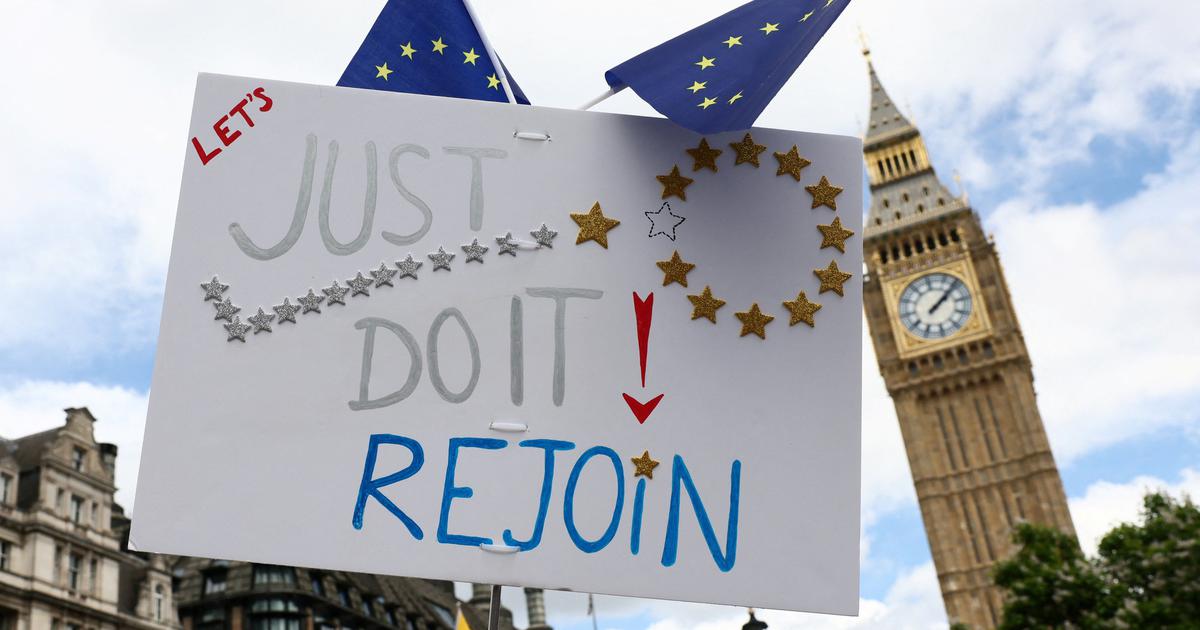 LET'S
JUST
DO IT
REJOiN